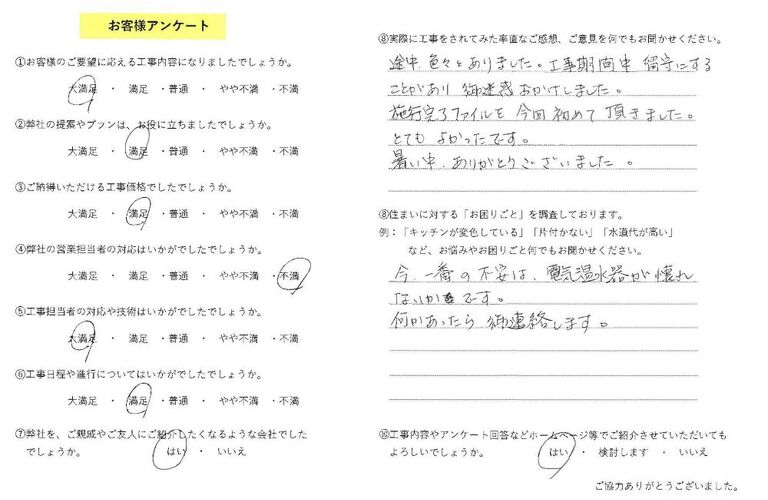 お客様アンケート
①お客様のご要望に応える工事内容になりましたでしょうか。
大満足 ・ 満足 ・普通 ・ やや不満 ・不満
②弊社の提案やプランは、お役に立ちましたでしょうか。
大満足 ・ 満足 ・普通 ・ やや不満 ・不満
③ご納得いただける工事価格でしたでしょうか。
大満足 ・ 満足 ・普通 ・ やや不満 ・不満
④弊社の営業担当者の対応はいかがでしたでしょうか。
大満足 ・ 満足 ・普通 ・ やや不満 ・不満
⑤工事担当者の対応や技術はいかがでしたでしょうか。
大満足 ・ 満足 ・普通 ・ やや不満 ・不満
⑥工事日程や進行についてはいかがでしたでしょうか。
大満足 ・ 満足 ・普通 ・ やや不満 ・不満
⑦弊社を、ご親戚やご友人にご紹介したくなるような会社でした
でしょうか。 はい ・ いいえ
⑧実際に工事をされてみた率直なご感想、ご意見を何でもお聞かせください。
途中 色々とありました。工事期間中 留守にする
ことがあり 御迷惑 おかけしました。
施行完了ファイルを 今回 初めて 頂きました。
とても よかったです。
暑い中、ありがとうございました。
⑧住まいに対する「お困りごと」を調査しております。
例：「キッチンが変色している」「片付かない」「水道代が高い」
など、お悩みやお困りごと何でもお聞かせください。
今、一番の不安は、電気温水器が壊れ
ないか です。
何かあったら 御連絡します。
⑩工事内容やアンケート回答などホームページ等でご紹介させていただいても
よろしいでしょうか。 はい ・ 検討します ・ いいえ
ご協力ありがとうございました。